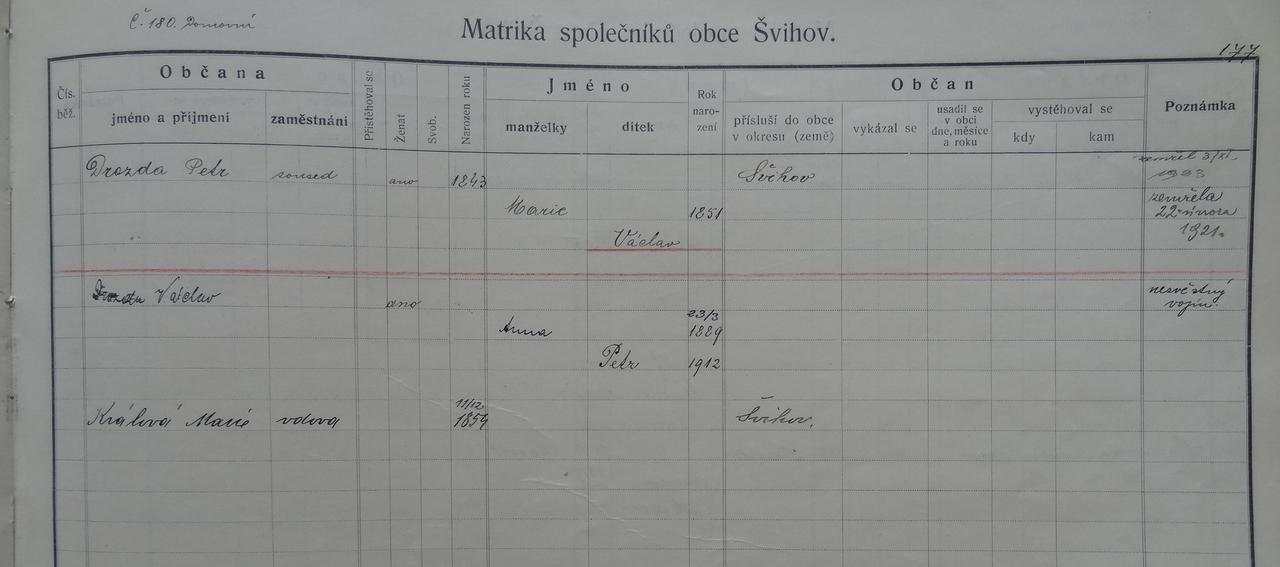 Č. 180. Domovní
Matrika společníků obce Švihov.
177
Čís. běž.
Občana
jméno a přijmení
zaměstnání
Přistěhoval se
Ženat
Svob.
Narozen roku
Jméno
manželky
dítek
Rok naro- zení
Občan
přísluší do obce v okresu (země)
vykázal se
usadil se v obci dne, měsíce a roku
vystěhoval se
kdy
kam
Poznámka
Drozda Petr soused ano 1843 Švihov zemřel 3/XI
Marie 1851 zemřela 22. února
Václav 1921.
Drozda Václav ano nezvěstný vojín.
23/3
Anna 1889
Petr 1912
11/12
Králová Marie vdova 1854 Švihov.